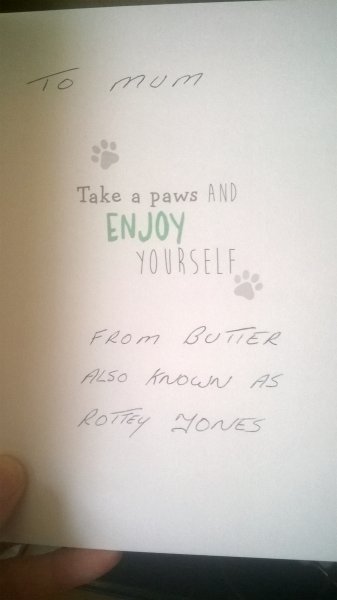 TO MUM
Take a paws AND
ENJOY
YOURSELF
FROM BUTTER
ALSO KNOWN AS
ROTTEY JONES